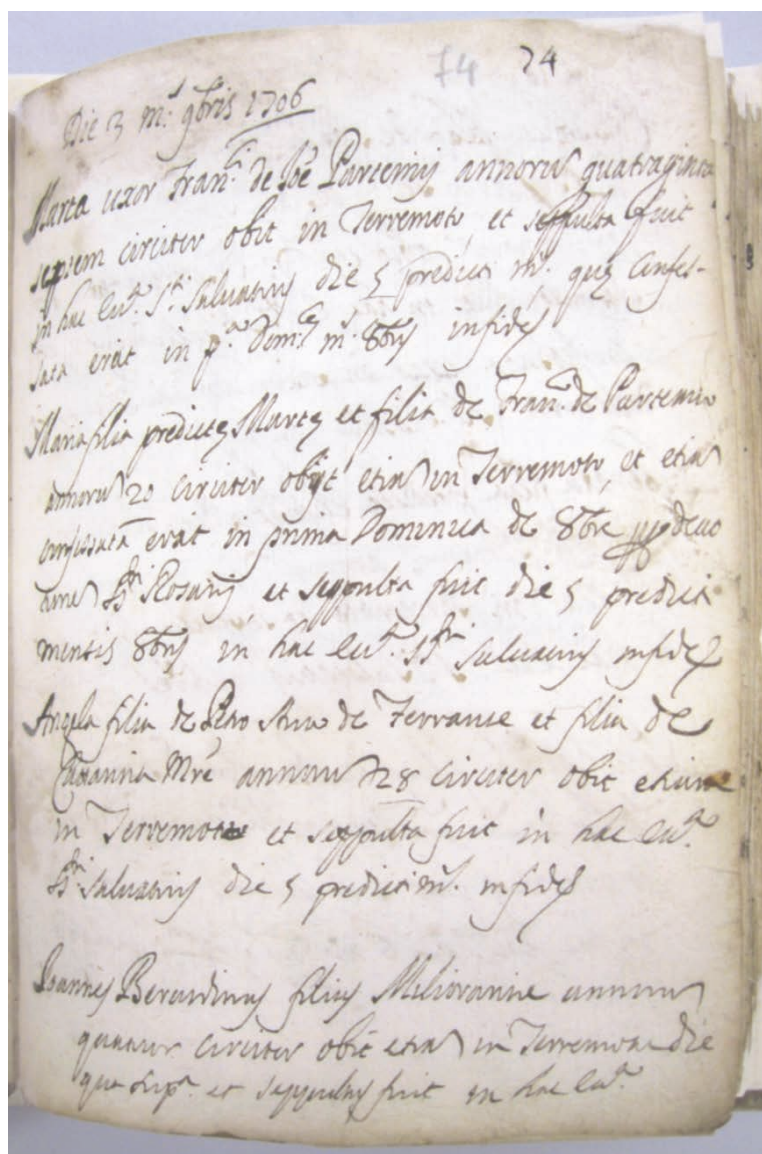 74 74
Die 3 m.s 9bris 1706
Marta uxor Fran.ci de Joe Partemij annorum quatraginta
septem circiter obit in Terremotu, et seppulta fuit
in hac Ecc.a S.ti Salvatoris die 5 predicti m.s que Confes-
sata erat in p.a Dom.ca m.s 8bris in fides
Maria filia predicte Marte et filia de Fran.co de Partemio
annoru 20 circiter obijt etia in Terremotu, et etia
confessata erat in prima Dominica de 8bre devo
S.mi Rosarij et seppulta fuit die 5 predicti
mensis 8bris in hac Ecc.a S.mi Salvatoris in fides
Angela filia de Petro de Terranse et filia de
annoru 28 circiter obit etiam
in Terremotu et seppulta fuit in hac Ecc.a
S.mi Salvatoris die 5 predicti m.s in fides
Joannes Berardinus filius annoru
quatuor circiter obit etia in Terremotu die
quo sup.a et seppultus fuit in hac Ecc.a